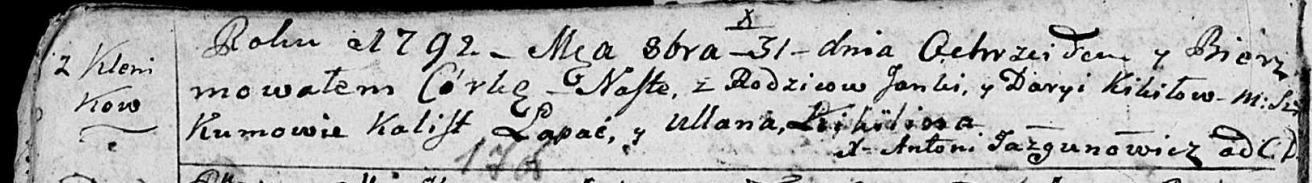 z Kleni
kow
x
Roku 1792 – Mca 8bra – 31 – dnia Ochrzciłem y Bierz
mowałem Córkę – Nastę, z Rodzicow Janki, y Daryi Kikiłow – M: Sz
Kumowie Kalist Łapać, y Ullana,
X Antoni Jazgunowicz ad C